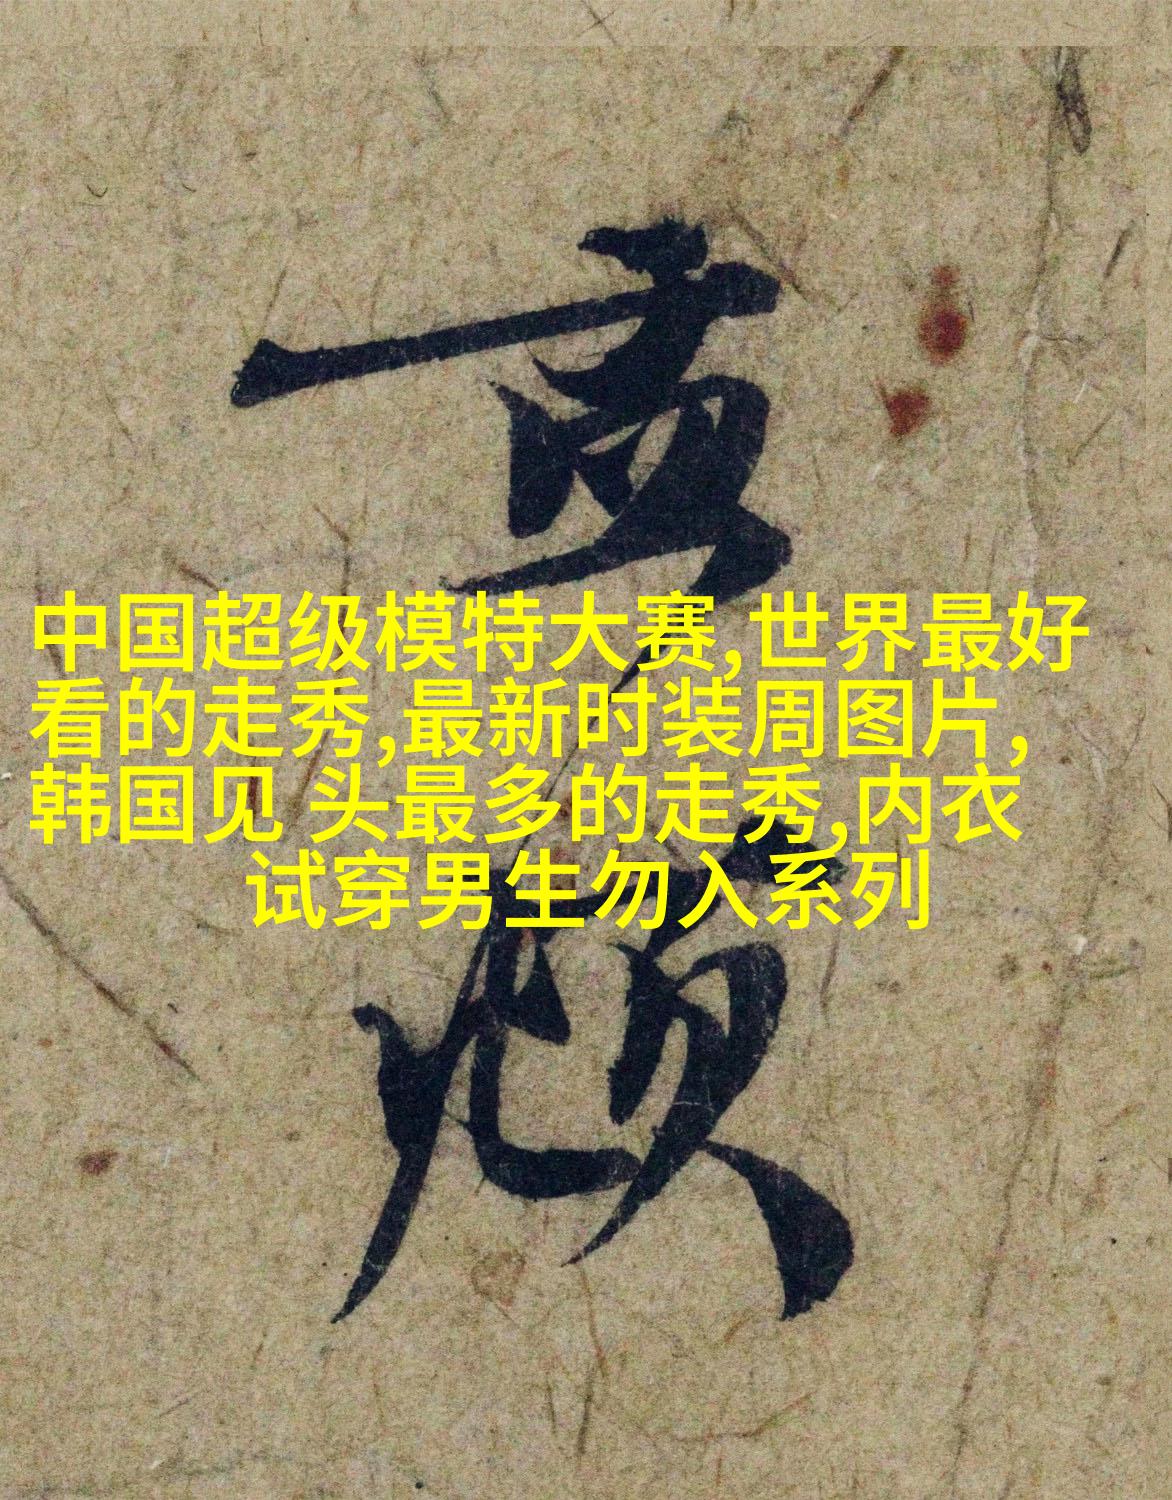 中国超级模特大赛,世界最好
看的走秀,最新时装周图片,
韩国见 头最多的走秀,内衣
试穿男生勿入系列